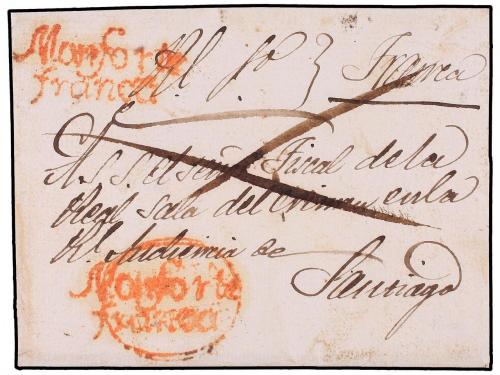 Monforte
franca
Rl. So. Franca
A S. S. el señor Fiscal de la
Real Sala del Crimen en la
Rl. Audiencia de
Santiago
Monforte
franca